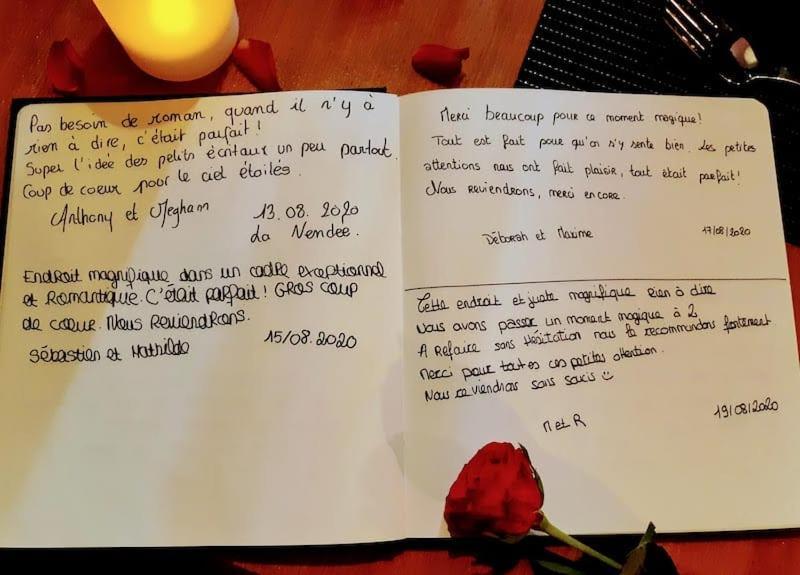 Pas besoin de roman, quand il n'y à
rien à dire, c'était parfait !
Super l'idée des petits écritaux un peu partout.
Coup de coeur pour le ciel étoilés.
Anthony et Megham 13.08.2020
La Vendee.
Endroit magnifique dans un cadre exceptionnel
et Romantique. C'était parfait ! Gros coup
de cœur. Nous Reviendrons.
Sébastien et Mathilde 15/08.2020
Merci beaucoup pour ce moment magique !
Tout est fait pour qu'on s'y sente bien. Les petites
attentions nous ont fait plaisir, tout était parfait !
Nous reviendrons, merci encore.
Déborah et Maxime 17/08/2020
Cette endroit et juste magnifique rien à dire
Nous avons passer un moment magique à 2
A Refaire sans Hésitation nous le recommandons fortement
Merci pour toutes ces petites attention.
Nous reviendras sans soucis ☺
M et R 19/08/2020